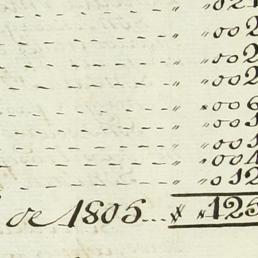 „ 021
„ „ 002
„ „ 002
„ „ 002
„ „ 006
„ „ 001
„ „ 001
„ „ 004
„ „ 012
de 1805 „ 125